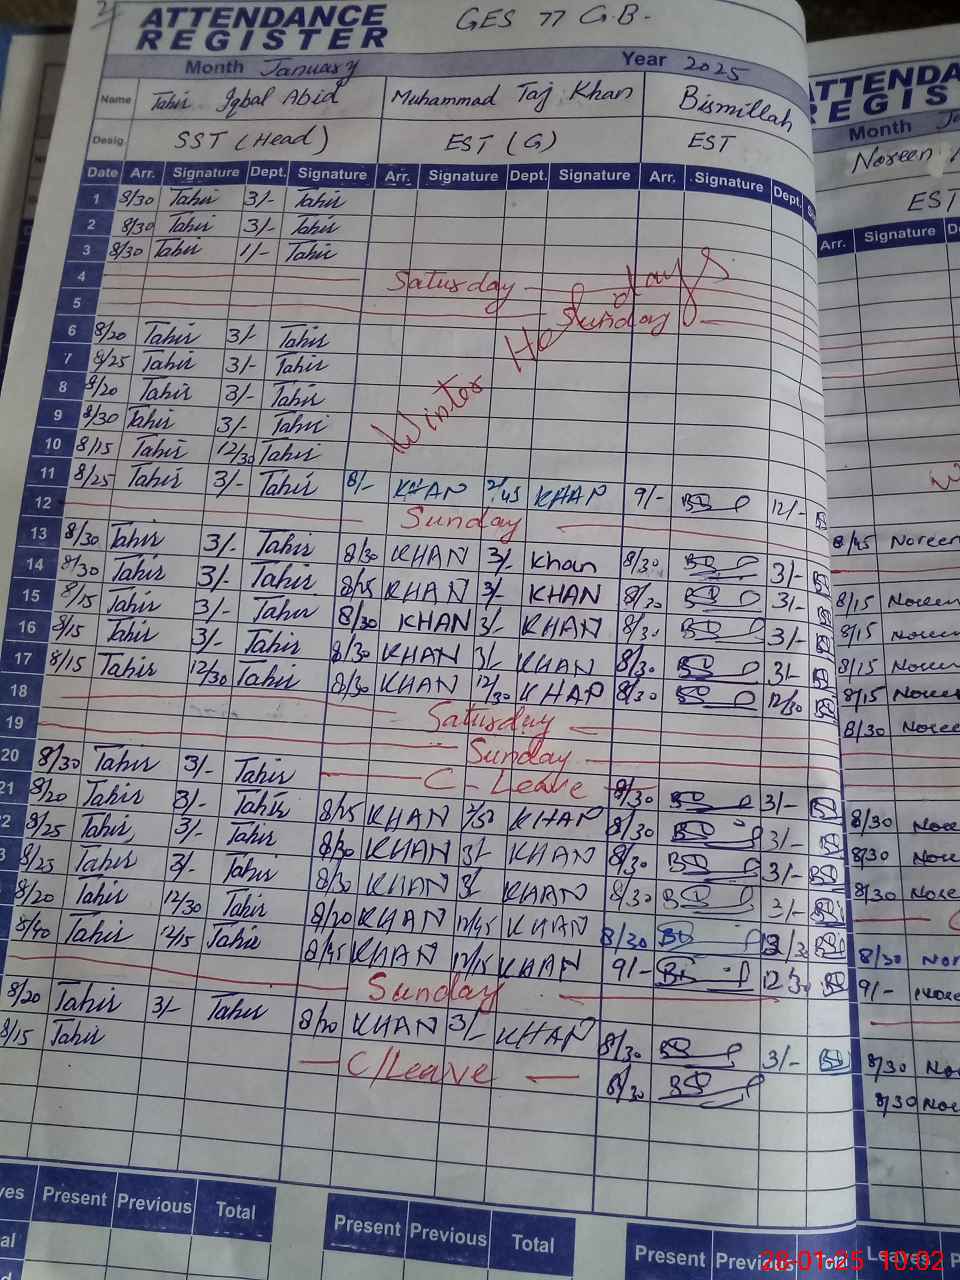 ATTENDANCE
REGISTER
GES 77 G.B.
Month January Year 2025
Name Tahir Iqbal Abid Muhammad Taj Khan Bismillah
Desig. SST (Head) EST (G) EST
Date Arr. Signature Dept. Signature Arr. Signature Dept. Signature Arr. Signature Dept.
1 8/30 Tahir 3/- Tahir
2 8/30 Tahir 3/- Tahir
3 8/30 Tahir 1/- Tahir
4 Saturday
5 Sunday
Winter Holidays
6 8/20 Tahir 3/- Tahir
7 8/25 Tahir 3/- Tahir
8 8/20 Tahir 3/- Tahir
9 8/30 Tahir 3/- Tahir
10 8/15 Tahir 12/30 Tahir
11 8/25 Tahir 3/- Tahir 8/- KHAN 2/45 KHAN 9/- 12/-
12 Sunday
13 8/30 Tahir 3/- Tahir 8/30 KHAN 3/- Khan 8/30 3/-
14 8/30 Tahir 3/- Tahir 8/25 KHAN 3/- KHAN 8/30 3/-
15 8/15 Tahir 3/- Tahir 8/30 KHAN 3/- KHAN 8/30 3/-
16 8/15 Tahir 3/- Tahir 8/30 KHAN 3/- KHAN 8/30 3/-
17 8/15 Tahir 12/30 Tahir 8/30 KHAN 12/30 KHAN 8/30 12/30
18 Saturday
19 Sunday
20 8/30 Tahir 3/- Tahir C-Leave 8/30 3/-
21 8/20 Tahir 3/- Tahir 8/25 KHAN 2/50 KHAN 8/30 3/-
8/25 Tahir 3/- Tahir 8/30 KHAN 3/- KHAN 8/30 3/-
8/25 Tahir 3/- Tahir 8/30 KHAN 3/- KHAN 8/30 3/-
8/20 Tahir 12/30 Tahir 8/20 KHAN 12/45 KHAN 8/30
8/40 Tahir 12/15 Tahir 8/45 KHAN 12/15 KHAN 9/- 12/30
Sunday
8/20 Tahir 3/- Tahir 8/20 KHAN 3/- KHAN 8/30 3/-
8/15 Tahir C/Leave 8/30
Present Previous Total
Present Previous Total
Present Previous Total Leaves
ATTENDA
REGIS
Month
Noreen
EST
Arr. Signature
8/45 Noreen
8/15 Noreen
8/15 Noreen
8/15 Noreen
8/15 Noreen
8/30 Noreen
8/30
8/30
8/30
8/30
9/-
8/30
8/30
28-01-25 10:02